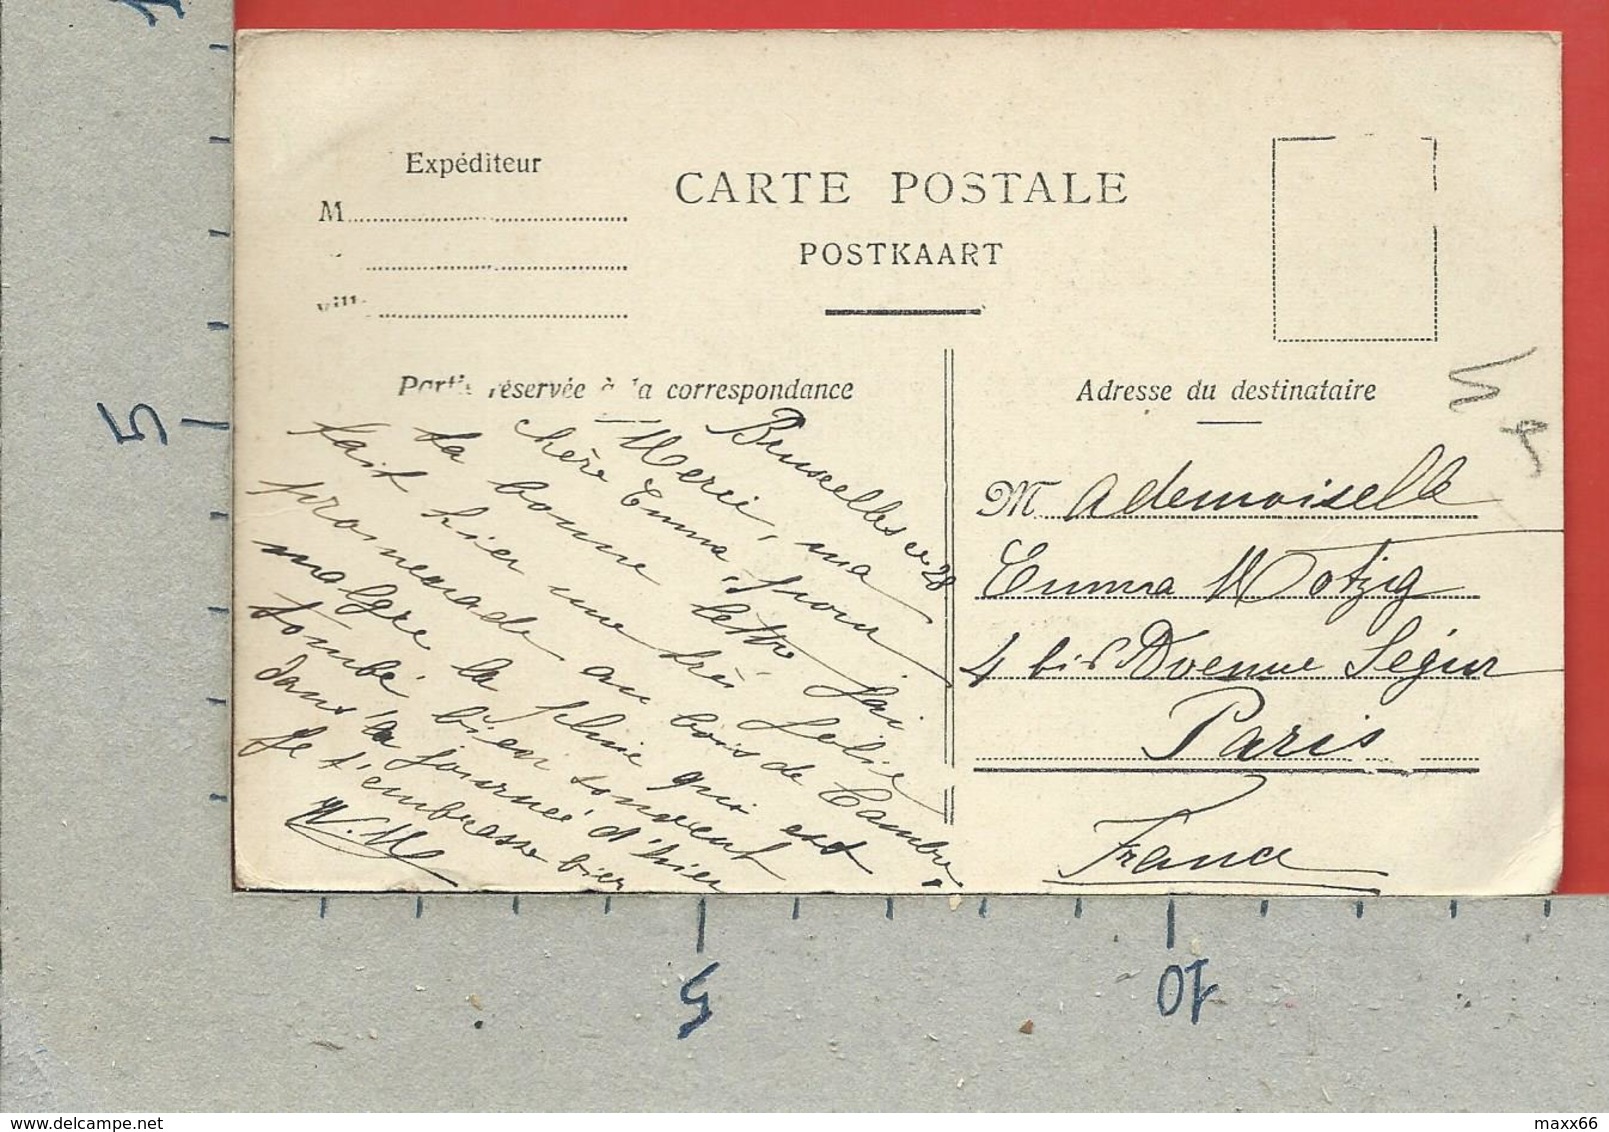 Expéditeur
M
CARTE POSTALE
POSTKAART
Partie réservée à la correspondance
Adresse du destinataire
Bruxelles ce 28
Merci, ma
chère Emma, pour
ta bonne lettre j'ai
fait hier une très jolie
promenade au bois de Cambre
malgré la pluie qui est
tombé bien souvent
dans la journée d'hier
Je t'embrasse bien
M ademoiselle
Emma Motzig
4 bis Avenue Ségur
Paris
France
5
5
10
maxx66